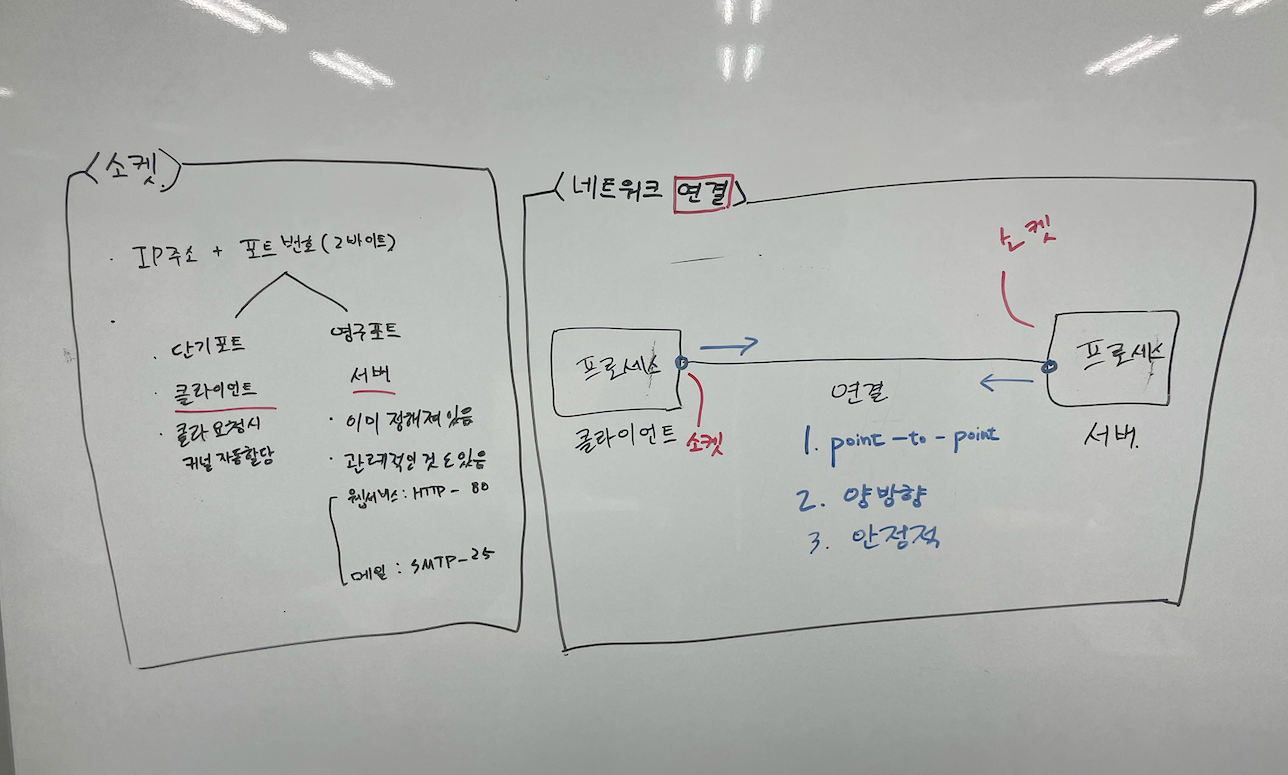 <소켓>
· IP주소 + 포트 번호(2바이트)
· 단기포트
· 클라이언트
· 클라 요청시
커널 자동할당
영구포트
서버
· 이미 정해져 있음
· 관례적인 것도 있음
웹서비스 : HTTP - 80
메일 : SMTP - 25
<네트워크 연결>
소켓
프로세스
프로세스
연결
클라이언트
소켓
서버.
1. point-to-point
2. 양방향
3. 안정적